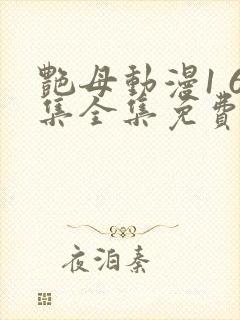 艷母動漫1 6
集全集免費
夜泊秦